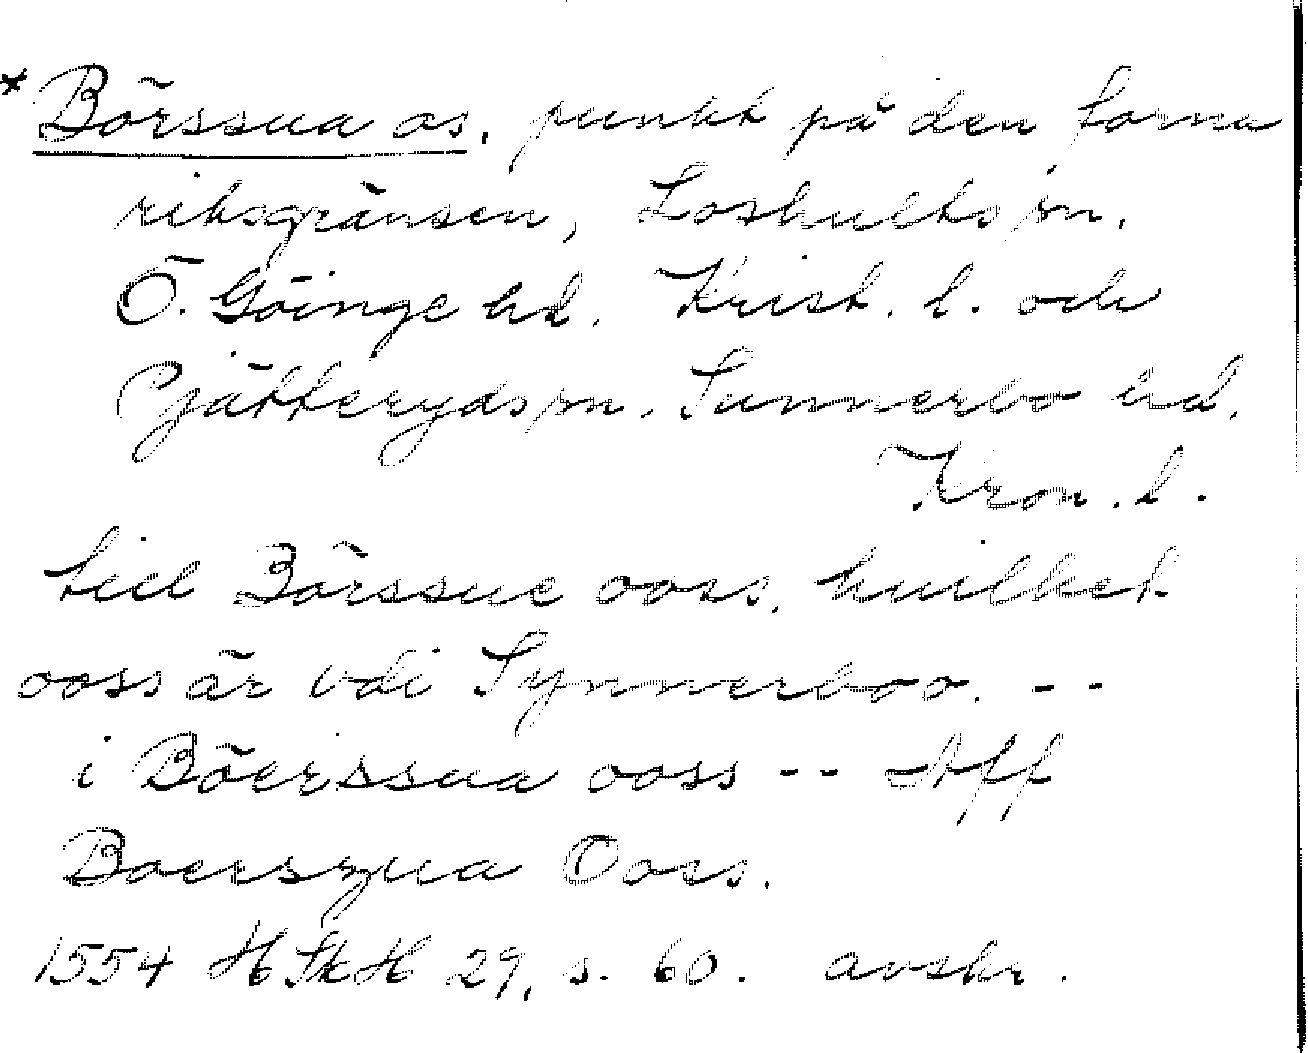 * Börssua as, punkt på den forna
riksgränsen, Loshults sn,
Ö. Göinge hd, Krist. l. och
Pjätteryds sn, Sunnerbo hd,
Kron. l.
till Börssue ooss, huilket
ooss är vdi Synnerboo. --
i Böerssua ooss -- Aff
Boerszua Ooss.
1554 HSkH 29, s. 60. avskr.